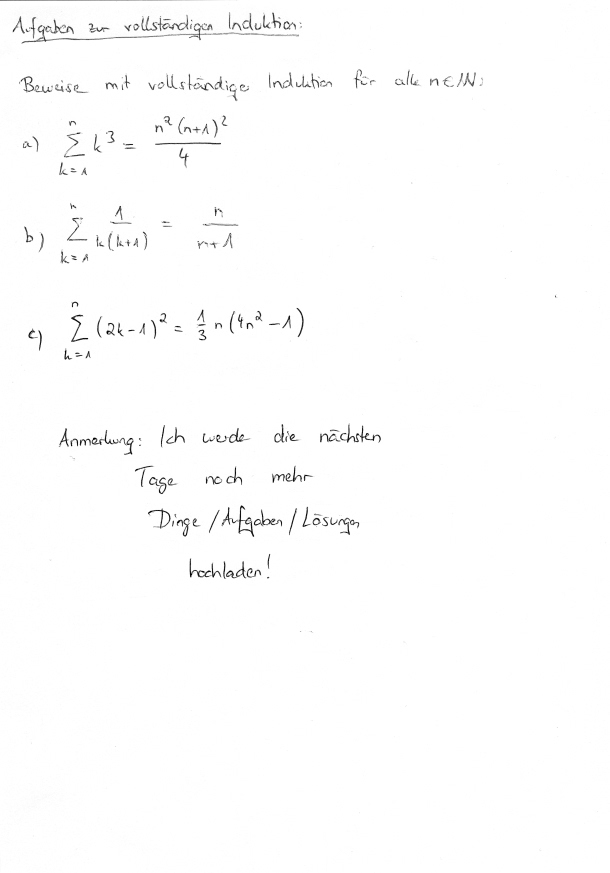 Aufgaben zur vollständigen Induktion:
Beweise mit vollständiger Induktion für alle n∈ℕ:
a) ∑_{k=1}^{n} k³ = n²(n+1)²/4
b) ∑_{k=1}^{n} 1/(k(k+1)) = n/(n+1)
c) ∑_{k=1}^{n} (2k-1)² = 1/3 n(4n²-1)
Anmerkung: Ich werde die nächsten
Tage noch mehr
Dinge/Aufgaben/Lösungen
hochladen!